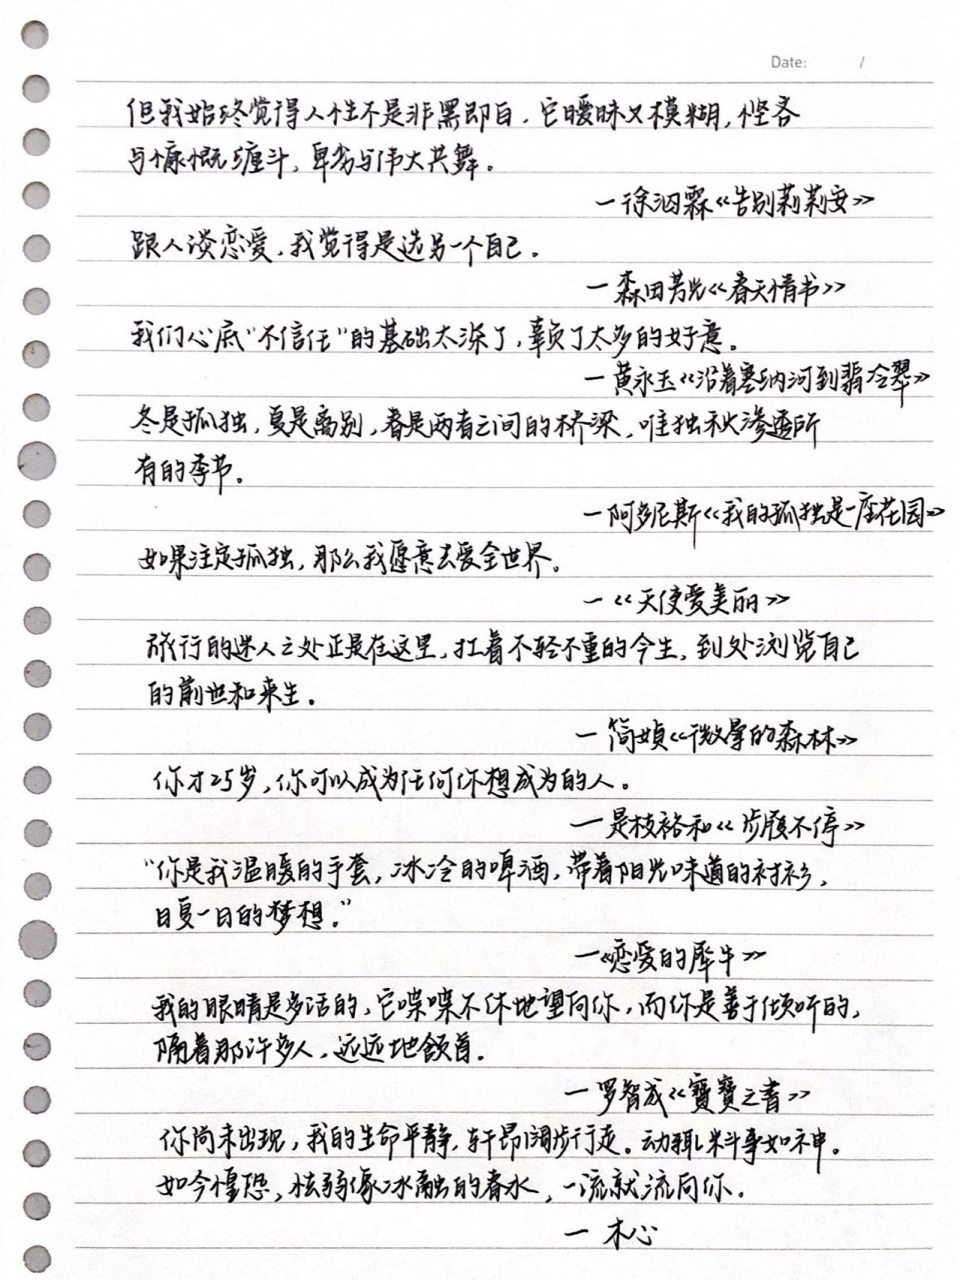 Date: /
但我始终觉得人性不是非黑即白，它暧昧又模糊，悭吝
与慷慨缠斗，卑劣与伟大共舞。
—徐汩霖《告别莉莉安》
跟人谈恋爱，我觉得是选另一个自己。
—森田芳光《春天情书》
我们心底“不信任”的基础太深了，辜负了太多的好意。
—黄永玉《沿着塞纳河到翡冷翠》
冬是孤独，夏是离别，春是两者之间的桥梁，唯独秋渗透所
有的季节。
—阿多尼斯《我的孤独是一座花园》
如果注定孤独，那么我愿意去爱全世界。
—《天使爱美丽》
旅行的迷人之处正是在这里，扛着不轻不重的今生，到处浏览自己
的前世和来生。
—简媜《微晕的森林》
你才25岁，你可以成为任何你想成为的人。
—是枝裕和《步履不停》
“你是我温暖的手套，冰冷的啤酒，带着阳光味道的衬衫，
日复一日的梦想。”
—《恋爱的犀牛》
我的眼睛是多话的，它喋喋不休地望向你，而你是善于倾听的，
隔着那许多人，远远地颔首。
—罗智成《寶寶之書》
你尚未出现，我的生命平静，轩昂阔步行走。动辄料事如神。
如今惶恐，怯弱像冰融的春水，一流就流向你。
—木心